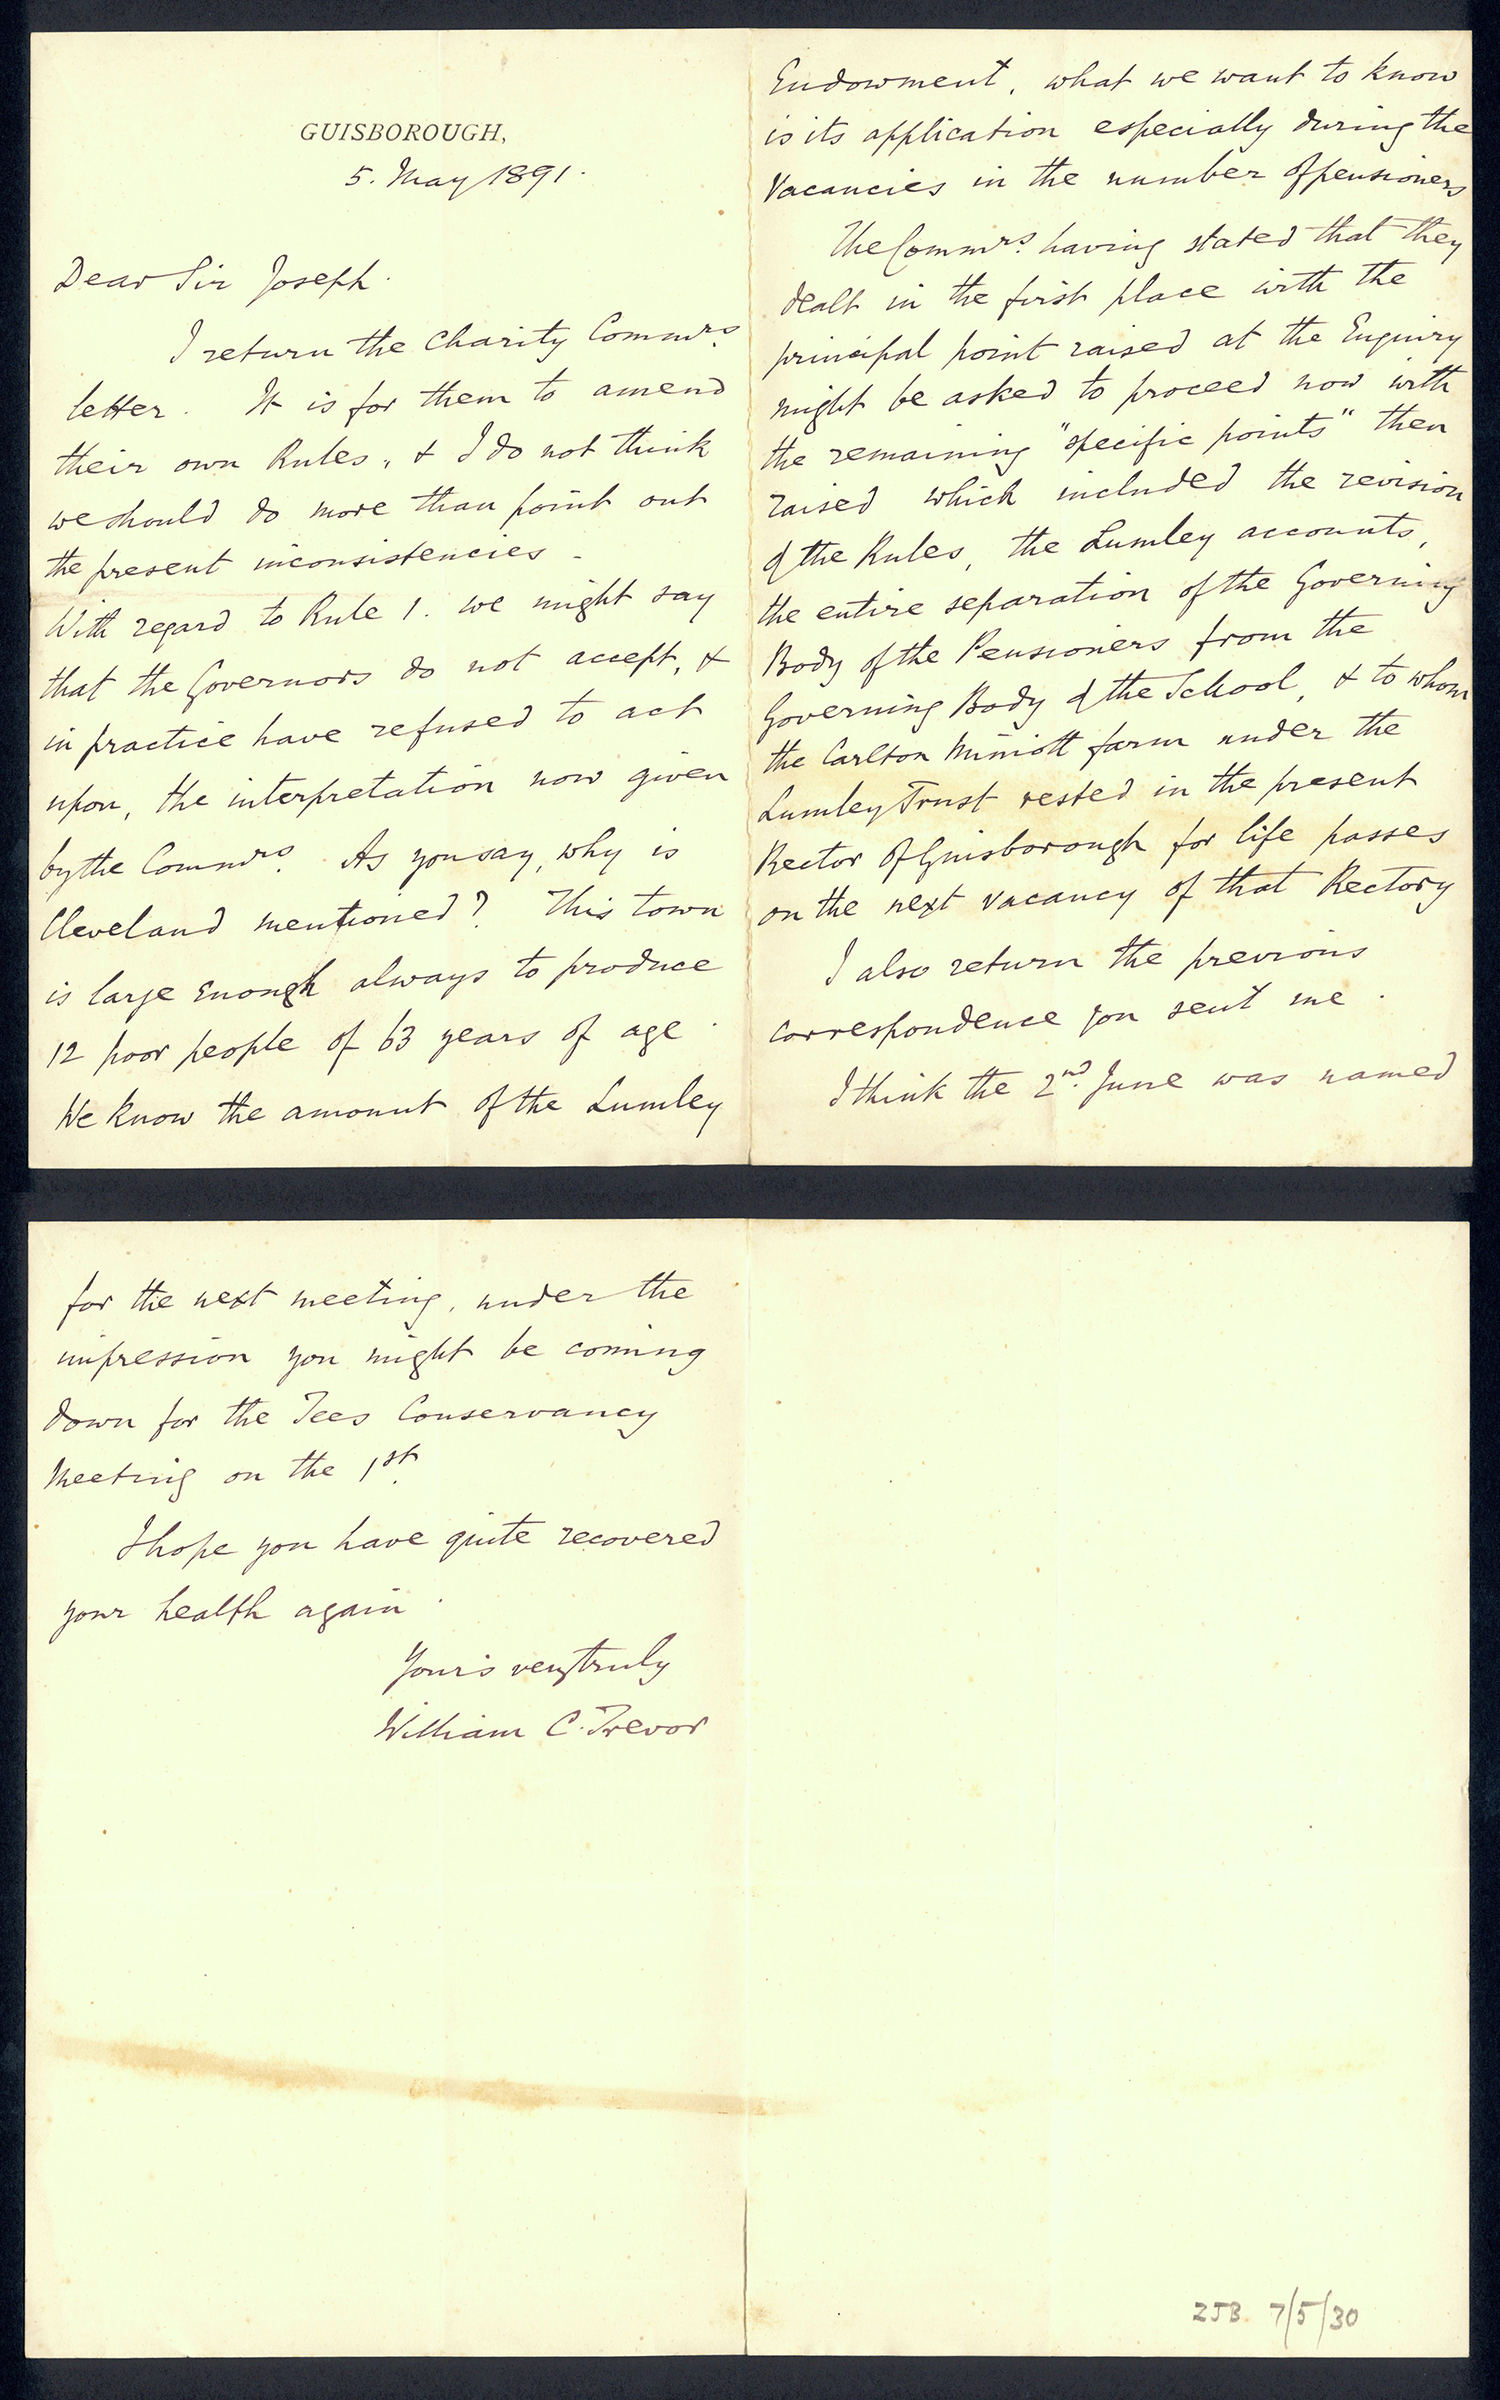 GUISBOROUGH,
5. May 1891.
Dear Sir Joseph.
I return the Charity Commrs.
letter. It is for them to amend
their own Rules, & I do not think
we should do more than point out
the present inconsistencies -
With regard to Rule 1. we might say
that the Governors do not accept, &
in practice have refused to act
upon, the interpretation now given
by the Commrs. As you say, why is
Cleveland mentioned? This town
is large enough always to produce
12 poor people of 63 years of age.
We know the amount of the Lumley
Endowment, what we want to know
is its application especially during the
vacancies in the number of pensioners
The Commrs. having stated that they
dealt in the first place with the
principal point raised at the Enquiry
might be asked to proceed now with
the remaining "specific points" then
raised which included the revision
of the Rules, the Lumley accounts,
the entire separation of the Governing
Body of the Pensioners from the
Governing Body of the School, & to whom
the Carlton Miniott farm under the
Lumley Trust vested in the present
Rector of Guisborough for life passes
on the next vacancy of that Rectory
I also return the previous
correspondence you sent me.
I think the 2nd. June was named
for the next meeting, under the
impression you might be coming
down for the Tees Conservancy
Meeting on the 1st.
I hope you have quite recovered
your health again.
Yours very truly
William C. Trevor
ZJB. 7/5/30